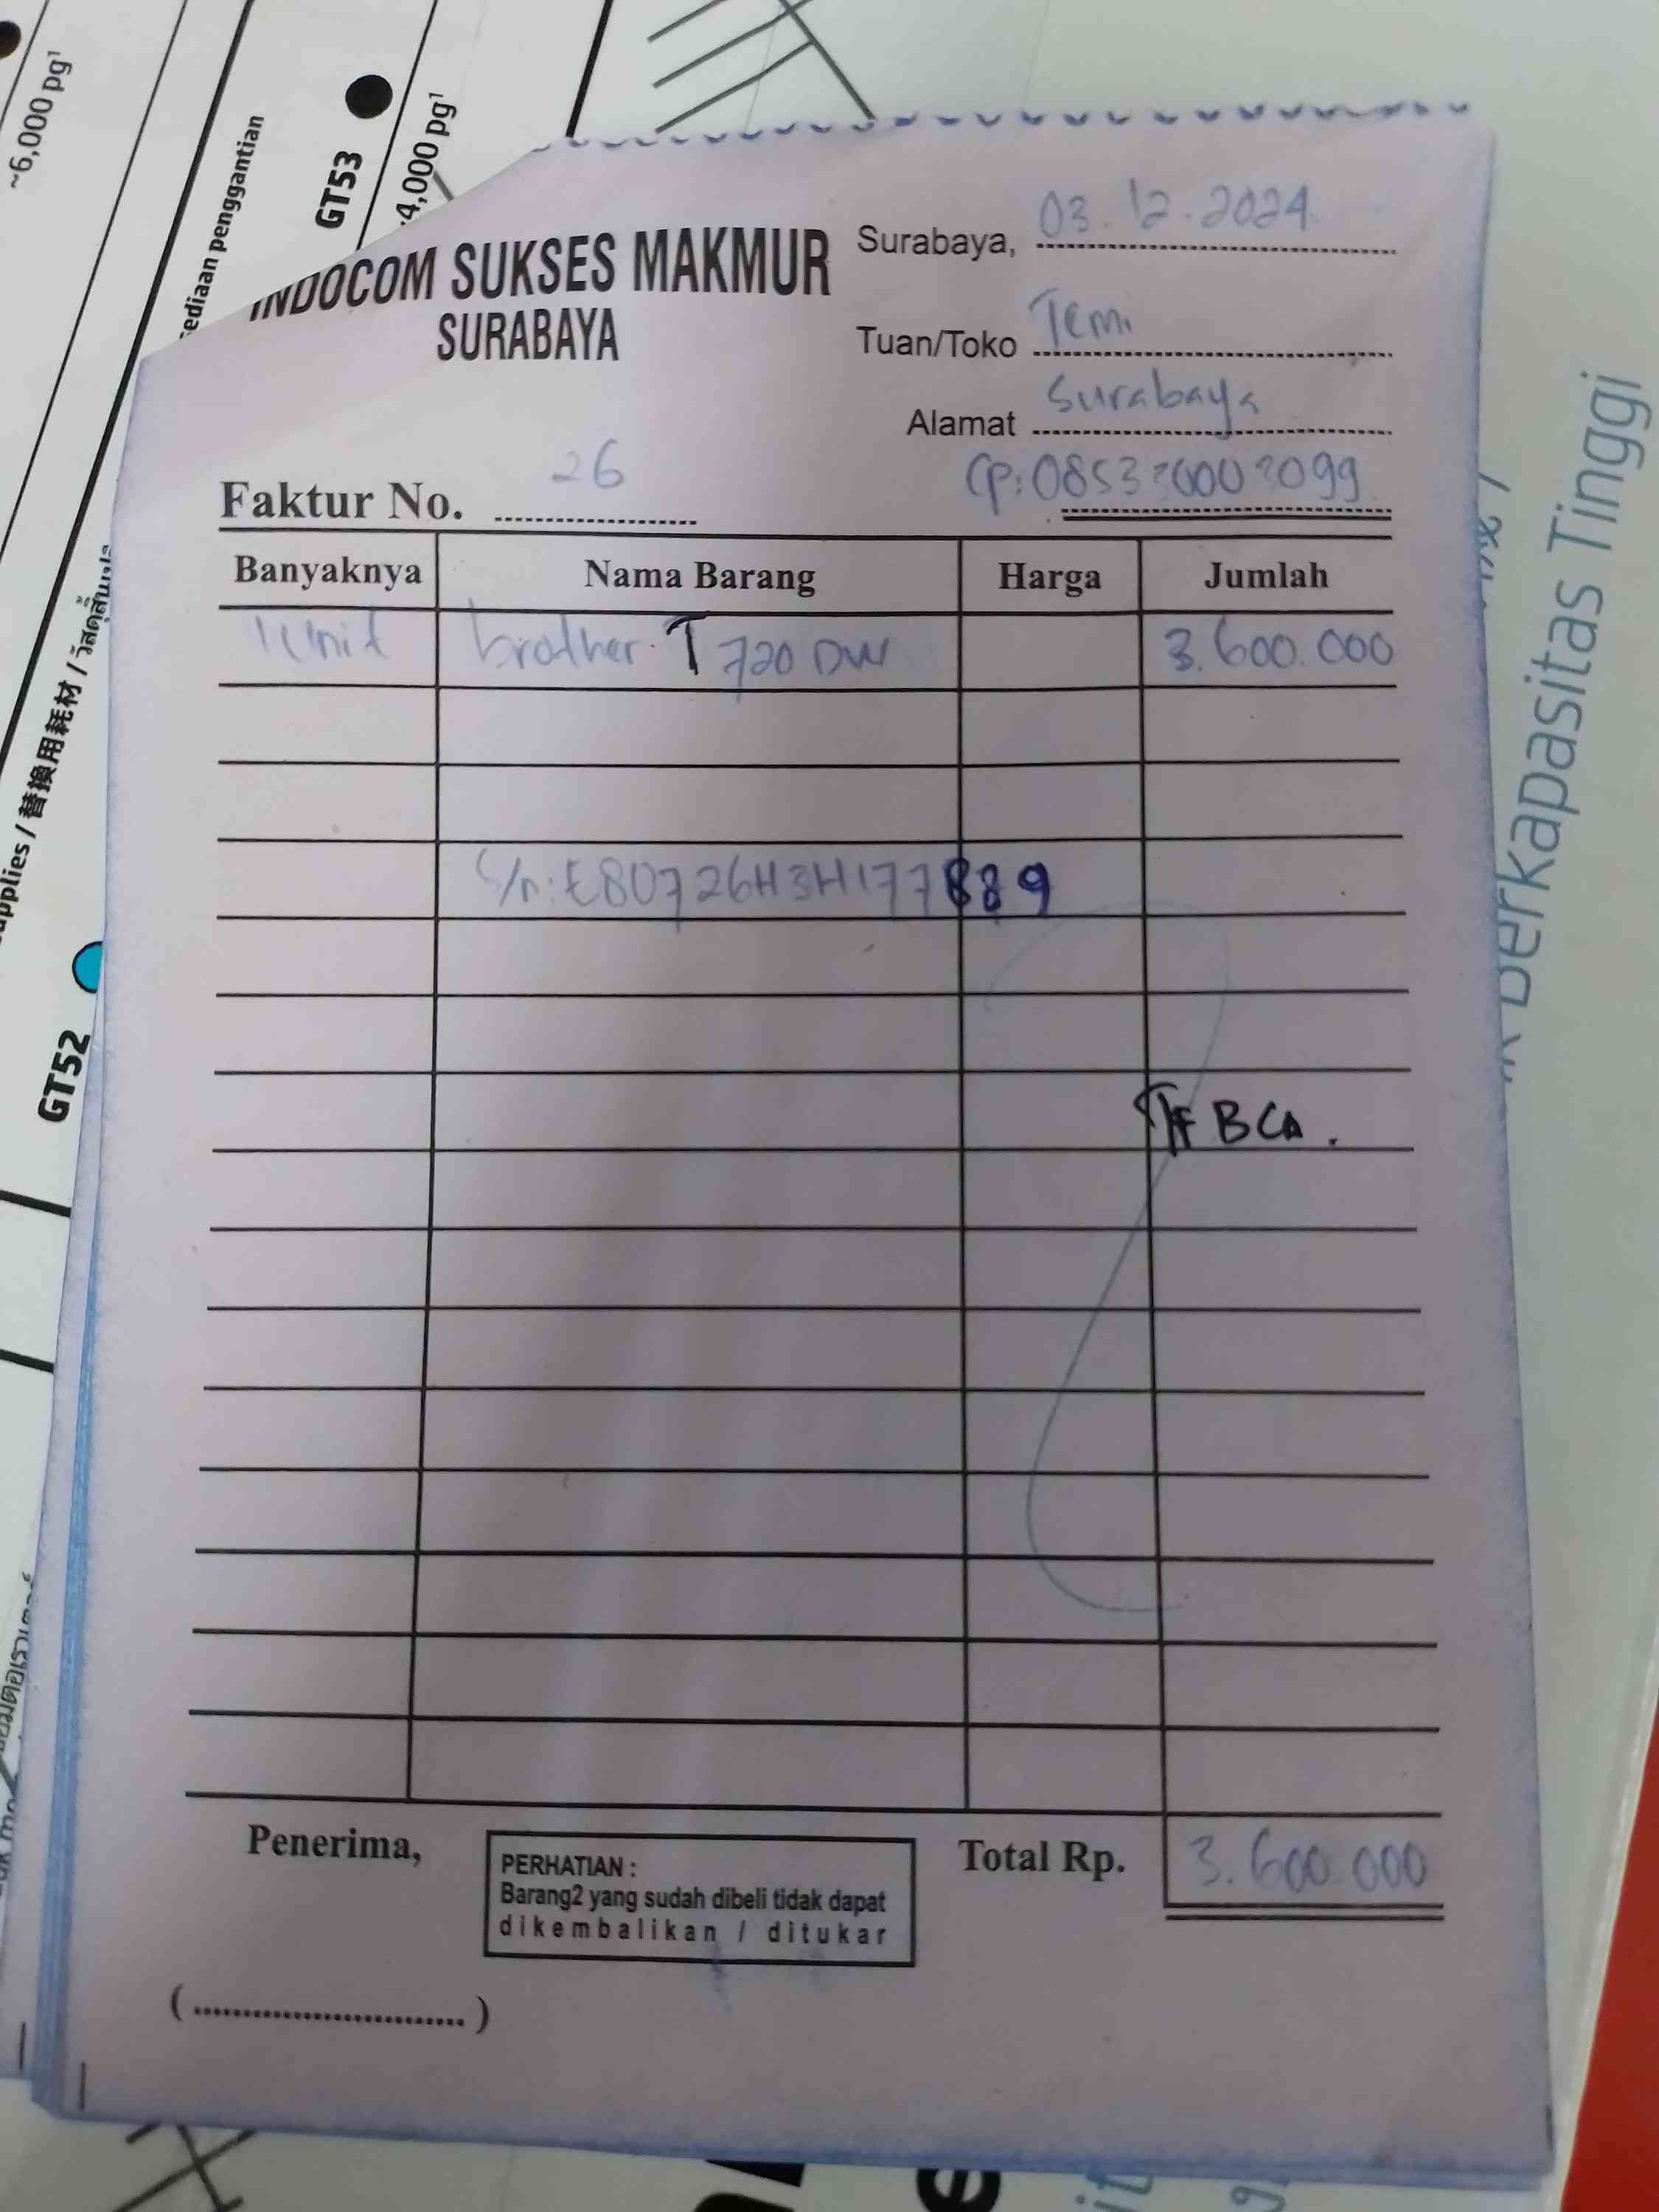 ~6,000 pg¹
GT53
4,000 pg¹
ediaan penggantian
upplies / 替換用耗材 /
GT52
Berkapasitas Tinggi
INDOCOM SUKSES MAKMUR
SURABAYA
Surabaya, 03.12.2024
Tuan/Toko Temi
Alamat Surabaya
Faktur No. 26
Banyaknya Nama Barang Harga Jumlah
1 Unit brother T 720 DW 3.600.000
S/n: E80726H3H177889
TF BCA.
Penerima,
PERHATIAN :
Barang2 yang sudah dibeli tidak dapat
dikembalikan / ditukar
Total Rp. 3.600.000
(.............................)